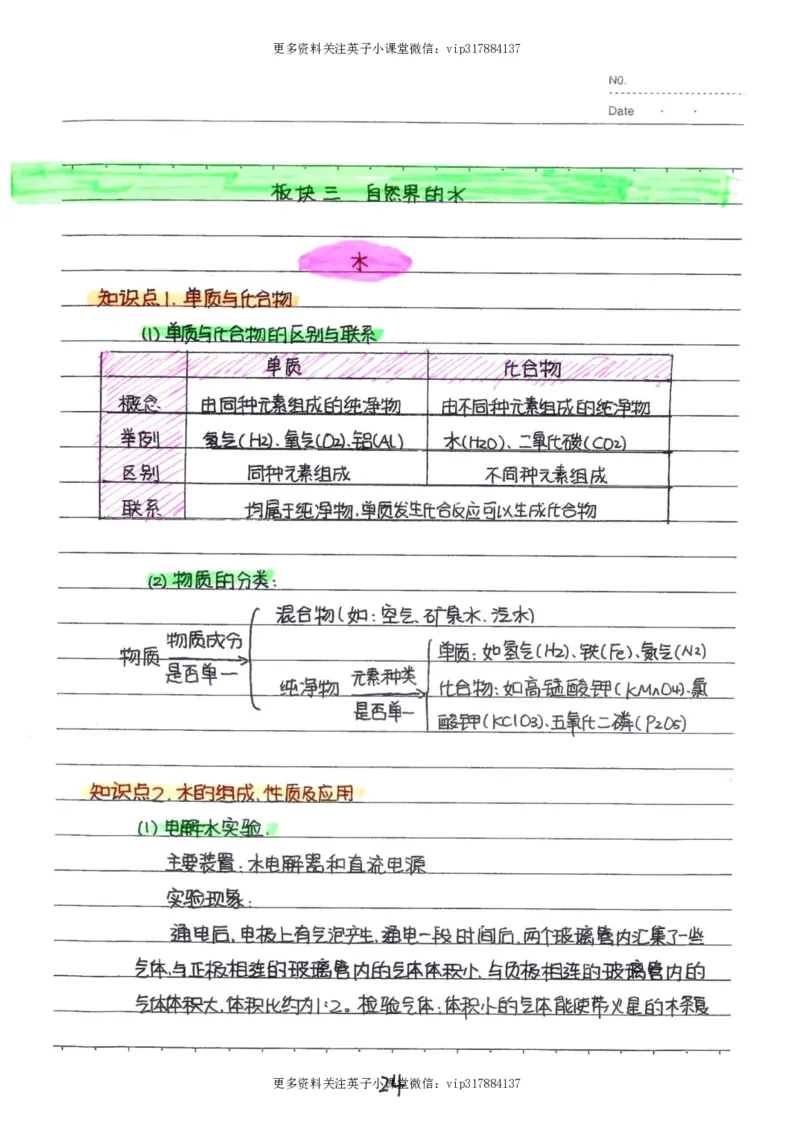 更多资料关注英子小课堂微信：vip317884137
NO.
Date
板块三 自然界的水
水
知识点1.单质与化合物
(1)单质与化合物的区别与联系
单质 化合物
概念 由同种元素组成的纯净物 由不同种元素组成的纯净物
举例 氢气(H2)、氧气(O2)、铝(Al) 水(H2O)、二氧化碳(CO2)
区别 同种元素组成 不同种元素组成
联系 均属于纯净物,单质发生化合反应可以生成化合物
(2)物质的分类:
混合物(如:空气、矿泉水、汽水)
物质 物质成分 是否单一
纯净物 元素种类 是否单一
单质:如氢气(H2)、铁(Fe)、氮气(N2)
化合物:如高锰酸钾(KMnO4)、氯
酸钾(KClO3)、五氧化二磷(P2O5)
知识点2.水的组成、性质及应用
(1)电解水实验.
主要装置:水电解器和直流电源
实验现象:
通电后,电极上有气泡产生,通电一段时间后,两个玻璃管内汇集了一些
气体,与正极相连的玻璃管内的气体体积小,与负极相连的玻璃管内的
气体体积大,体积比约为1:2。检验气体:体积小的气体能使带火星的木条复
24
更多资料关注英子小课堂微信：vip317884137